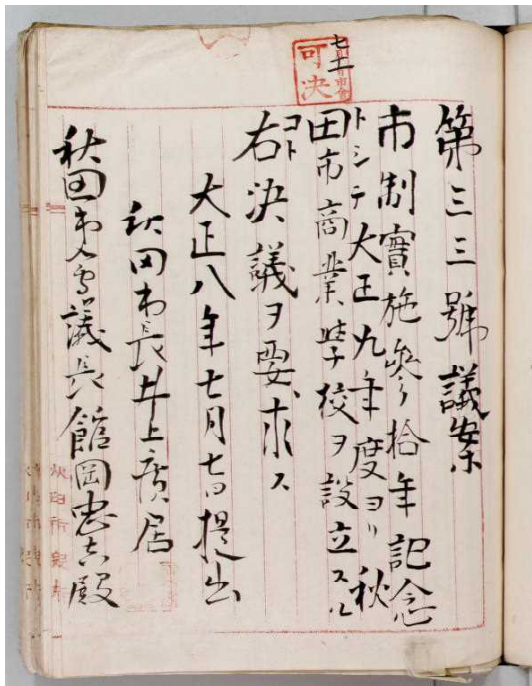 七、十一
可決
第三三號議案
市制實施参拾年記念
トシテ大正九年度ヨリ秋
田市商業學校ヲ設立スル
コト
右決議ヲ要求ス
大正八年七月七日提出
秋田市長井上廣居
秋田市会議長館岡忠吉殿
秋田市役所